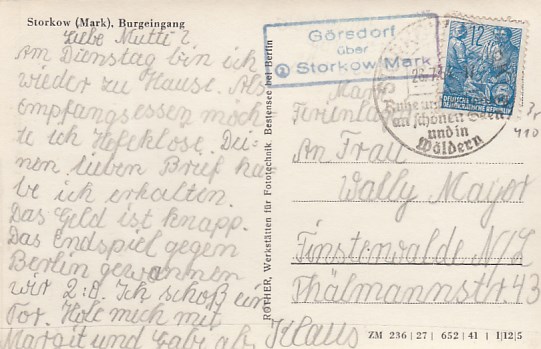 Storkow (Mark), Burgeingang
Liebe Mutti!
Am Dienstag bin ich
wieder zu Hause. Als
empfangsessen möch
te ich Hefeklose. Dei-
nen lieben Brief ha
be ich erhalten.
Das Geld ist knapp.
Das Endspiel gegen
Berlin gewannen
wir 2:8. Ich schoß ein
Tor. Hole mich mit
Margit und Gabi ab. Klaus
ROTHER, Werkstätten für Fototechnik, Bestensee bei Berlin
Görsdorf
über
Storkow Mark
12
DEUTSCHE
DEMOKRATISCHE REPUBLIK
Ruhe
an schönen Seen
und in
Wäldern
Ferienla
An Frau
Wally Mayer
Finsterwalde N/L
Thälmannstr. 43
ZM 236 | 27 | 652 | 41 | 1|12|5